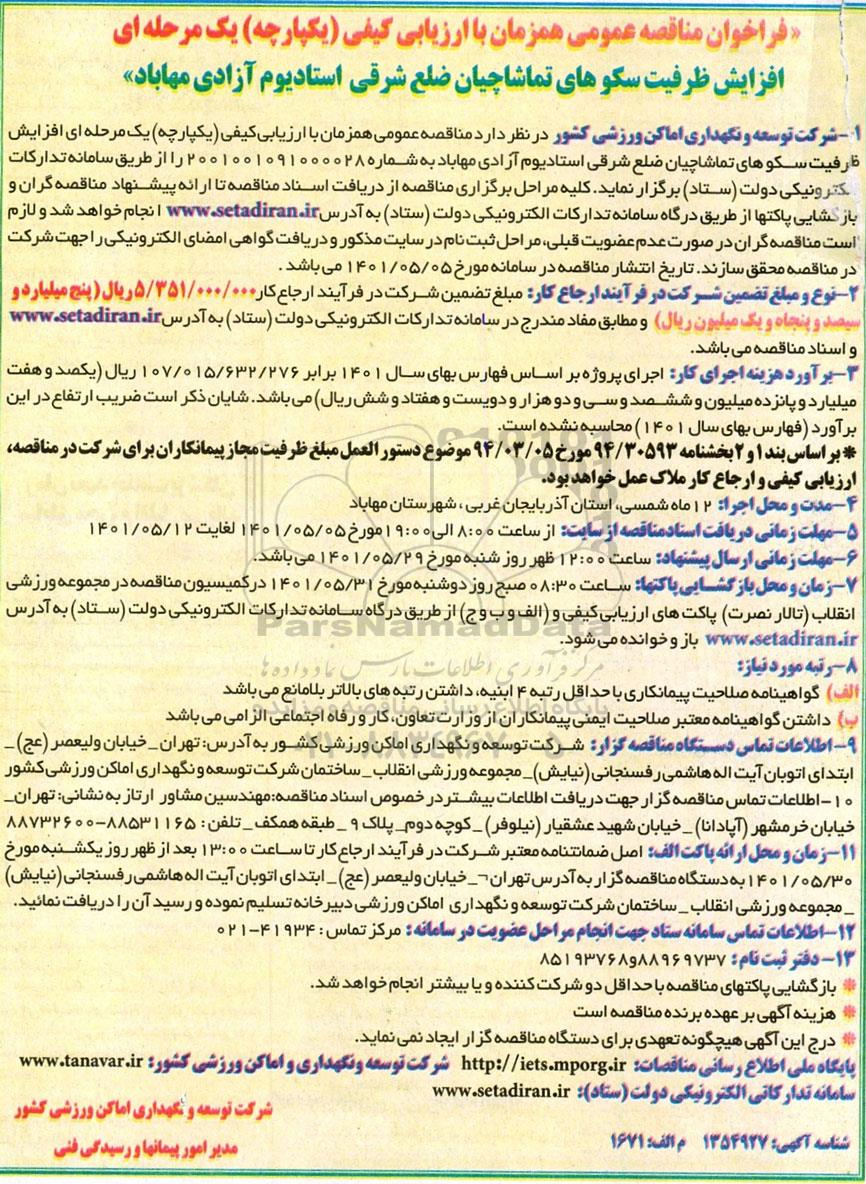 «فراخوان مناقصه عمومی همزمان با ارزیابی کیفی (یکپارچه) یک مرحله ای
افزایش ظرفیت سکو های تماشاچیان ضلع شرقی استادیوم آزادی مهاباد»
۱-شرکت توسعه و نگهداری اماکن ورزشی کشور در نظر دارد مناقصه عمومی همزمان با ارزیابی کیفی (یکپارچه) یک مرحله ای افزایش
ظرفیت سکو های تماشاچیان ضلع شرقی استادیوم آزادی مهاباد به شماره ۲۰۰۱۰۰۱۰۹۱۰۰۰۰۲۸ را از طریق سامانه تدارکات
الکترونیکی دولت (ستاد) برگزار نماید. کلیه مراحل برگزاری مناقصه از دریافت اسناد مناقصه تا ارائه پیشنهاد مناقصه گران و
بازگشایی پاکتها از طریق درگاه سامانه تدارکات الکترونیکی دولت (ستاد) به آدرس www.setadiran.ir انجام خواهد شد و لازم
است مناقصه گران در صورت عدم عضویت قبلی، مراحل ثبت نام در سایت مذکور و دریافت گواهی امضای الکترونیکی را جهت شرکت
در مناقصه محقق سازند. تاریخ انتشار مناقصه در سامانه مورخ ۱۴۰۱/۰۵/۰۵ می باشد.
۲-نوع و مبلغ تضمین شرکت در فرآیند ارجاع کار: مبلغ تضمین شرکت در فرآیند ارجاع کار ۵/۳۵۱/۰۰۰/۰۰۰ ریال (پنج میلیارد و
سیصد و پنجاه و یک میلیون ریال) و مطابق مفاد مندرج در سامانه تدارکات الکترونیکی دولت (ستاد) به آدرس www.setadiran.ir
و اسناد مناقصه می باشد.
۳-برآورد هزینه اجرای کار: اجرای پروژه بر اساس فهارس بهای سال ۱۴۰۱ برابر ۱۰۷/۰۱۵/۶۳۲/۲۷۶ ریال (یکصد و هفت
میلیارد و پانزده میلیون و ششصد و سی و دو هزار و دویست و هفتاد و شش ریال) می باشد. شایان ذکر است ضریب ارتفاع در این
برآورد (فهارس بهای سال ۱۴۰۱) محاسبه نشده است.
* بر اساس بند ۱ و ۲ بخشنامه ۹۴/۳۰۵۹۳ مورخ ۹۴/۰۳/۰۵ موضوع دستور العمل مبلغ ظرفیت مجاز پیمانکاران برای شرکت در مناقصه،
ارزیابی کیفی و ارجاع کار ملاک عمل خواهد بود.
۴-مدت و محل اجرا: ۱۲ ماه شمسی، استان آذربایجان غربی، شهرستان مهاباد
۵-مهلت زمانی دریافت اسناد مناقصه از سایت: از ساعت ۸:۰۰ الی ۱۹:۰۰ مورخ ۱۴۰۱/۰۵/۰۵ لغایت ۱۴۰۱/۰۵/۱۲
۶-مهلت زمانی ارسال پیشنهاد: ساعت ۱۲:۰۰ ظهر روز شنبه مورخ ۱۴۰۱/۰۵/۲۹ می باشد.
۷-زمان و محل بازگشایی پاکتها: ساعت ۰۸:۳۰ صبح روز دوشنبه مورخ ۱۴۰۱/۰۵/۳۱ در کمیسیون مناقصه در مجموعه ورزشی
انقلاب (تالار نصرت) پاکت های ارزیابی کیفی و (الف و ب و ج) از طریق درگاه سامانه تدارکات الکترونیکی دولت (ستاد) به آدرس
www.setadiran.ir باز و خوانده می شود.
ParsNamadData
مرکز فرآوری اطلاعات پارس نماد داده ها
۸-رتبه مورد نیاز:
الف) گواهینامه صلاحیت پیمانکاری با حداقل رتبه ۴ ابنیه، داشتن رتبه های بالاتر بلامانع می باشد
ب) داشتن گواهینامه معتبر صلاحیت ایمنی پیمانکاران از وزارت تعاون، کار و رفاه اجتماعی الزامی می باشد
۹-اطلاعات تماس دستگاه مناقصه گزار: شرکت توسعه و نگهداری اماکن ورزشی کشور به آدرس: تهران _ خیابان ولیعصر (عج) _
ابتدای اتوبان آیت اله هاشمی رفسنجانی (نیایش) _ مجموعه ورزشی انقلاب _ ساختمان شرکت توسعه و نگهداری اماکن ورزشی کشور
۱۰-اطلاعات تماس مناقصه گزار جهت دریافت اطلاعات بیشتر در خصوص اسناد مناقصه: مهندسین مشاور ارتاز به نشانی: تهران _
خیابان خرمشهر (آپادانا) _ خیابان شهید عشقیار (نیلوفر) _ کوچه دوم _ پلاک ۹ _ طبقه همکف _ تلفن: ۸۸۵۳۱۱۶۵-۸۸۷۳۲۶۰۰
۱۱-زمان و محل ارائه پاکت الف: اصل ضمانتنامه معتبر شرکت در فرآیند ارجاع کار تا ساعت ۱۳:۰۰ بعد از ظهر روز یکشنبه مورخ
۱۴۰۱/۰۵/۳۰ به دستگاه مناقصه گزار به آدرس تهران ¬_ خیابان ولیعصر (عج) _ ابتدای اتوبان آیت اله هاشمی رفسنجانی (نیایش)
_ مجموعه ورزشی انقلاب _ ساختمان شرکت توسعه و نگهداری اماکن ورزشی دبیرخانه تسلیم نموده و رسید آن را دریافت نمائید.
۱۲-اطلاعات تماس سامانه ستاد جهت انجام مراحل عضویت در سامانه: مرکز تماس: ۴۱۹۳۴-۰۲۱
۱۳-دفتر ثبت نام: ۸۸۹۶۹۷۳۷ و ۸۵۱۹۳۷۶۸
* بازگشایی پاکتهای مناقصه با حداقل دو شرکت کننده و یا بیشتر انجام خواهد شد.
* هزینه آگهی بر عهده برنده مناقصه است
* درج این آگهی هیچگونه تعهدی برای دستگاه مناقصه گزار ایجاد نمی نماید.
پایگاه ملی اطلاع رسانی مناقصات: http://iets.mporg.ir شرکت توسعه ونگهداری و اماکن ورزشی کشور: www.tanavar.ir
سامانه تدارکاتی الکترونیکی دولت (ستاد): www.setadiran.ir
شرکت توسعه و نگهداری اماکن ورزشی کشور
مدیر امور پیمانها و رسیدگی فنی
شناسه آگهی: ۱۳۵۴۹۲۷ م الف: ۱۶۷۱